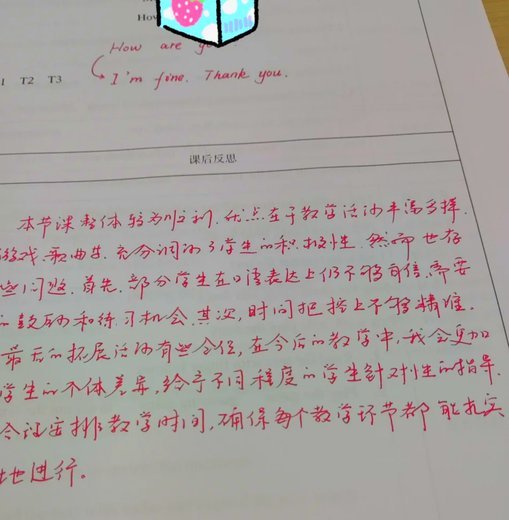 How
How are
I'm fine. Thank you.
1 T2 T3
课后反思
本节课整体较为顺利,优点在于教学活动丰富多样,
游戏、歌曲等,充分调动了学生的积极性。然而也存
些问题。首先,部分学生在口语表达上仍不够自信,需要
的鼓励和练习机会。其次,时间把控上不够精准。
最后的拓展活动有些仓促,在今后的教学中,我会更加
学生的个体差异,给予不同程度的学生针对性的指导。
合理安排教学时间,确保每个教学环节都能扎实
地进行。